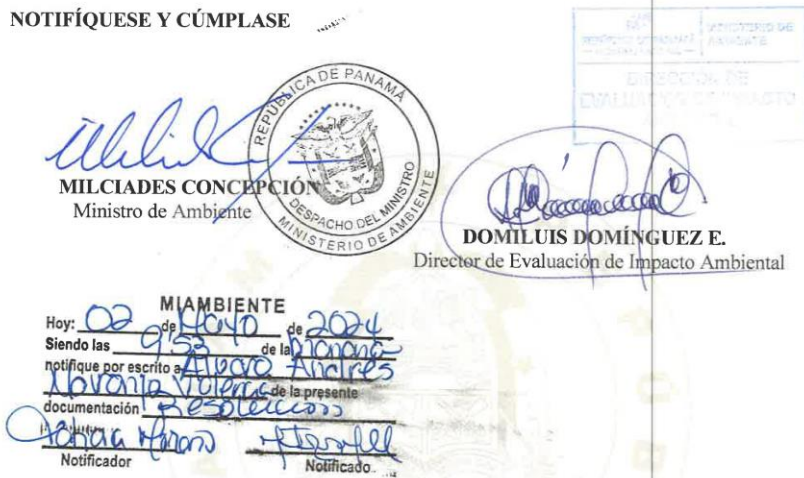 NOTIFÍQUESE Y CÚMPLASE
REPÚBLICA DE PANAMÁ
DESPACHO DEL MINISTRO
MINISTERIO DE AMBIENTE
MILCIADES CONCEPCIÓN
Ministro de Ambiente
DOMILUIS DOMÍNGUEZ E.
Director de Evaluación de Impacto Ambiental
MIAMBIENTE
Hoy: 02 de Mayo de 2024
Siendo las 9:53 de la mañana
notifique por escrito a Alvaro Andres
Naranjo de la presente
documentación Resolucion
Notificador Notificado